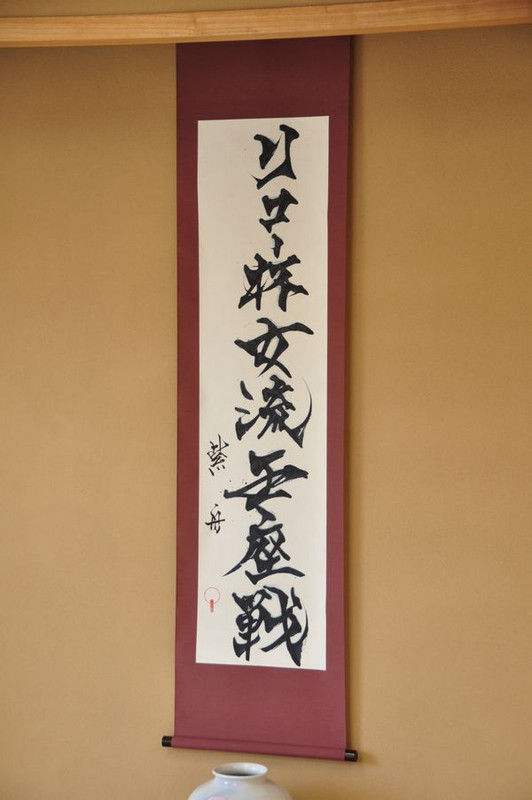 リコー杯女流王座戦
紫舟